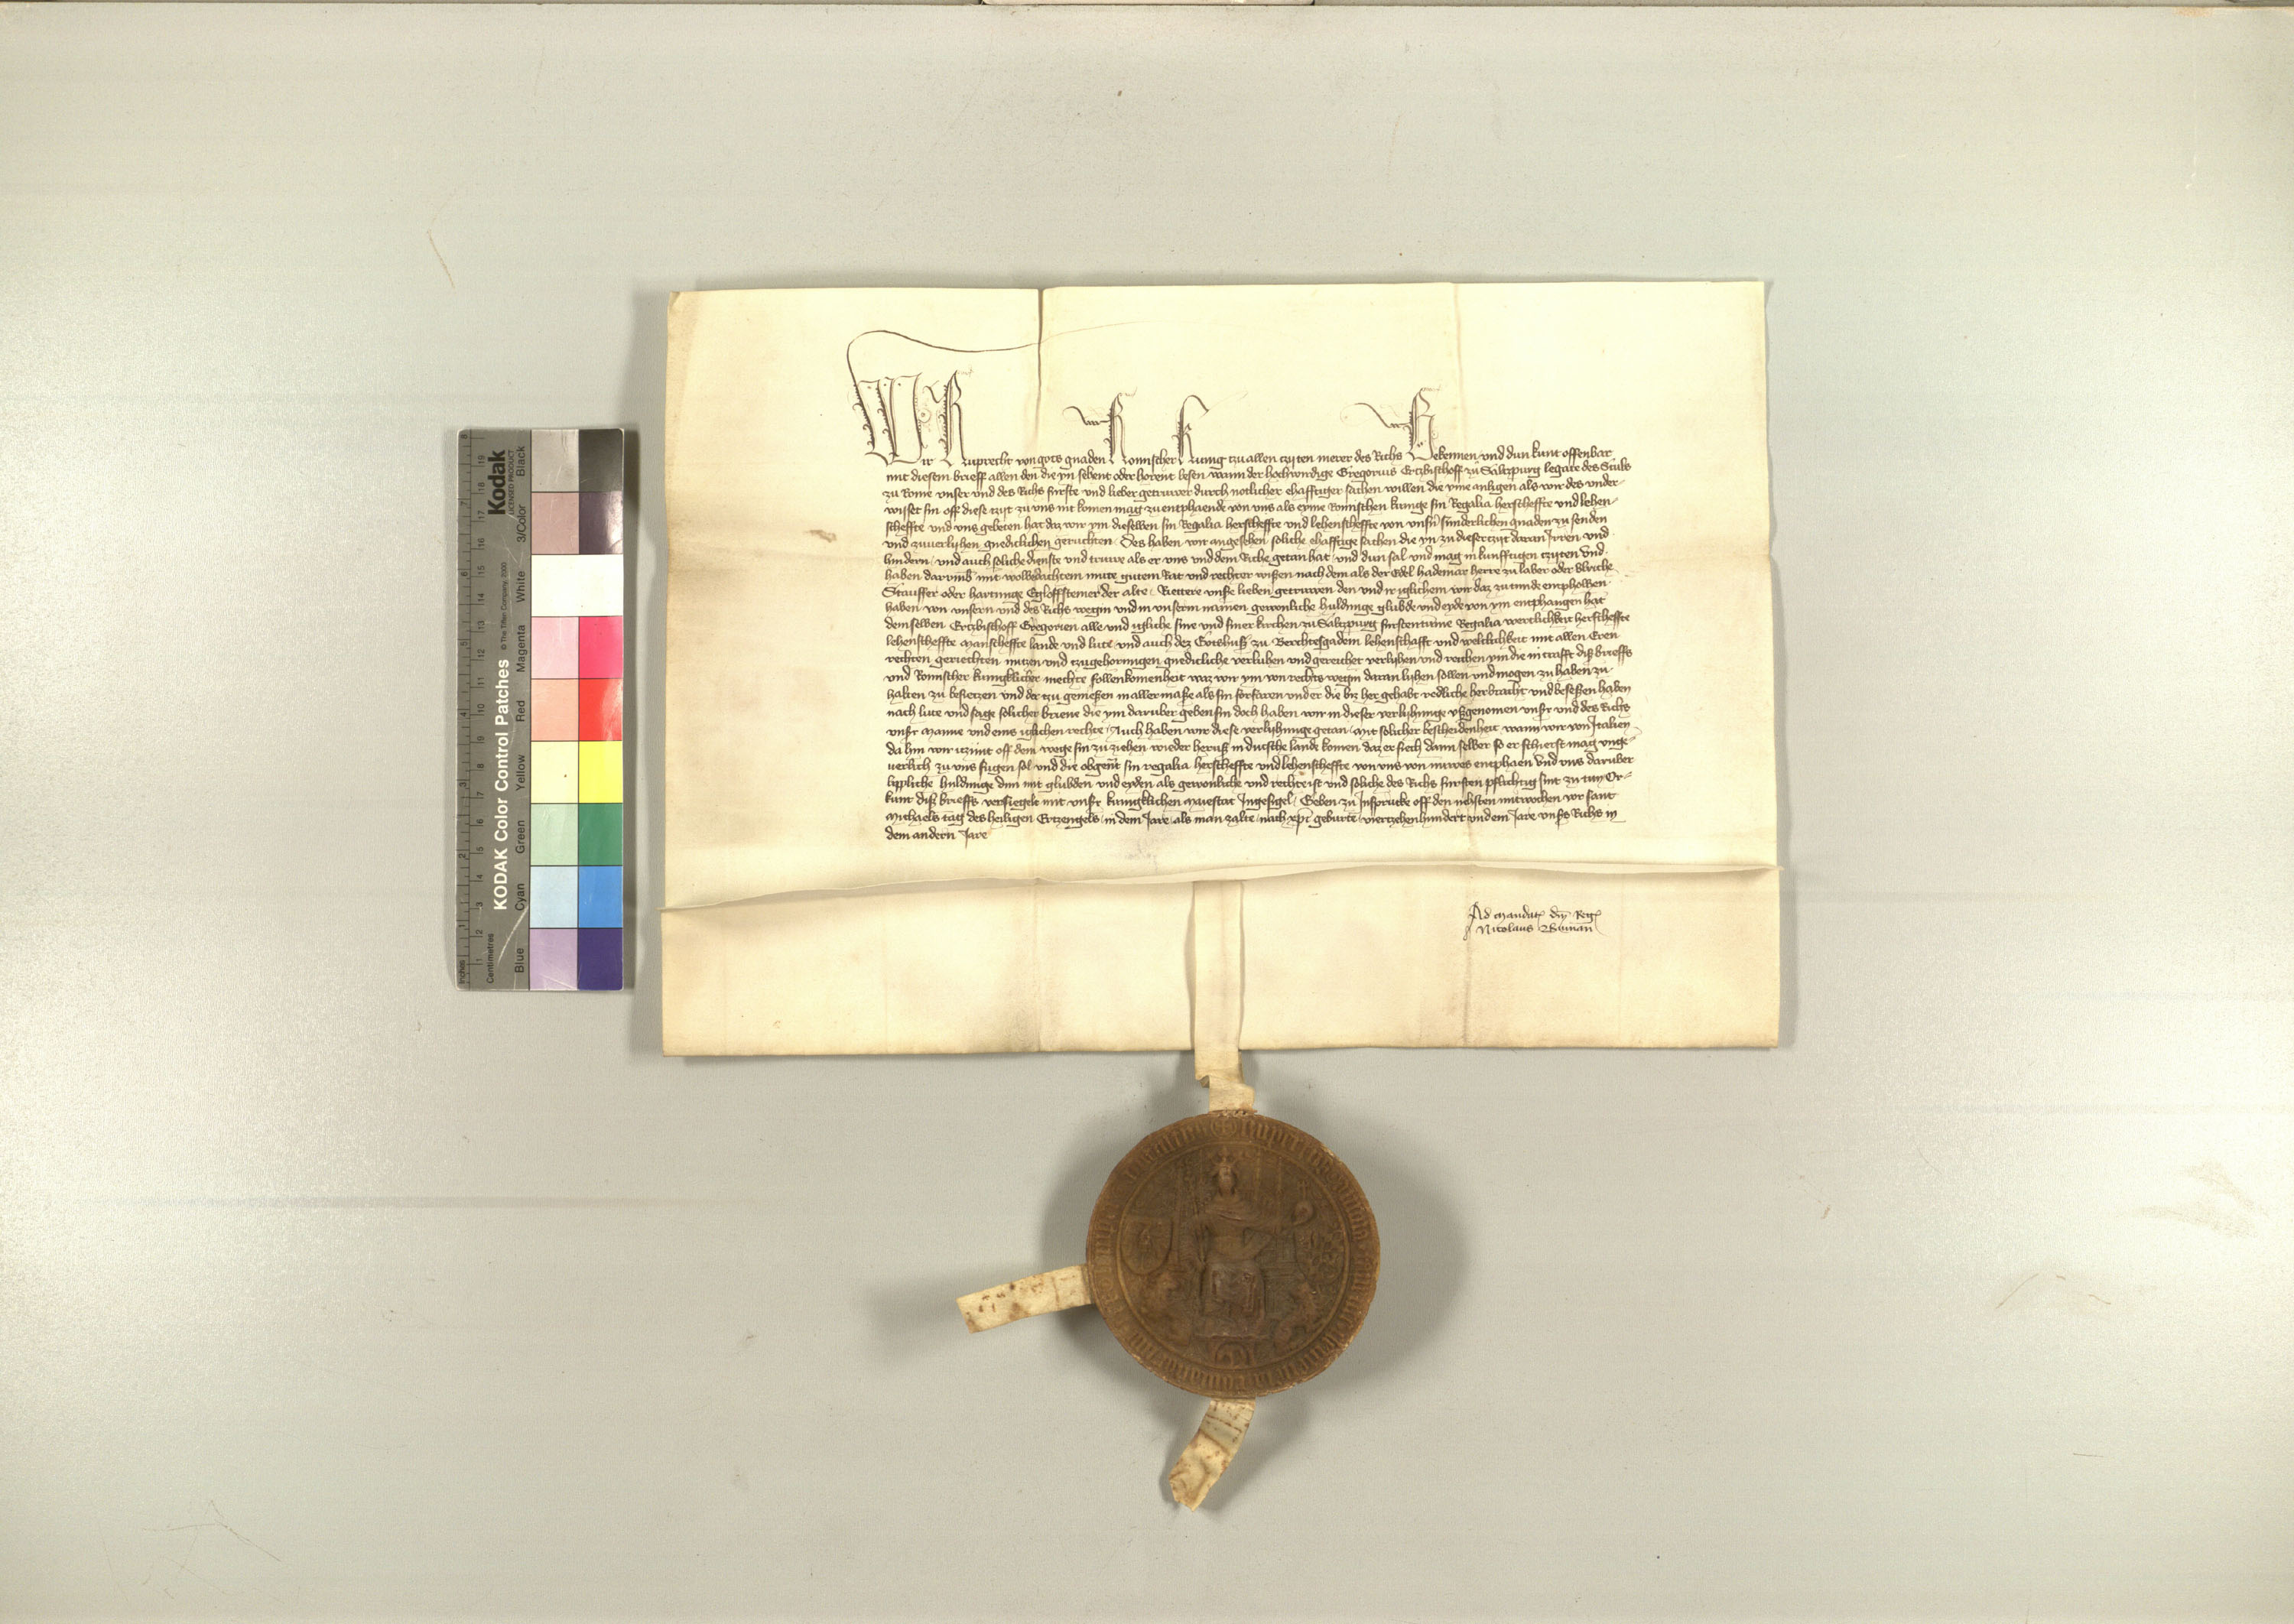 Wir Ruprecht von gots gnaden Romischer Kunig tzu allen tzijten merer des Richs Bekennen und dun kunt offenbar
mit diesem brieff allen den die yn sehent oder horent lesen wann der hochwirdige Gregorius Ertzbischoff zu Saltzpurg legate des Stuls
zu Rome unser und des Richs furste und lieber getruwer durch notlicher ehafftiger sachen willen die yme anligen als wir des under-
wijset sin off diese tzijt zu uns nit komen mag zu entphaende von uns als eyme Romischen kunige sin Regalia herscheffte und lehen-
scheffte und uns gebeten hat daz wir ym dieselben sin Regalia herscheffte und lehenscheffte von unsn sunderlichen gnaden zu senden
und zuverlyhen gnediclichen geruchten Des haben wir angesehen soliche ehafftige sachen die yn zu dieser tzijt daran Irren und
hindern und auch soliche dienste und truwe als er uns und dem Riche getan hat und dun sal und mag in kunfftigen tzijten Und
haben darumb mit wolbedachtem mute gutem Rat und rechter wißen nach dem als der Edel hademar herre zu laber oder Ulriche
Stauffer oder hartunge Egloffsteiner der alte Rittere unsr lieben getruwen den und ir iglichem wir daz zutunde empholhen
haben von unsern und des Richs wegin und in unserm namen gewonliche huldunge glubde und eyde von ym entphangen hat
demselben Ertzbischoff Gregorien alle und igliche sine und siner kirchen zu Saltzpurg furstentume Regalia werltlichkeit herscheffte
lehenscheffte manscheffte lande und lute und auch dez Gotshuß zu Berchtesgadem lehenschafft und weltlichkeit mit allen Eren
rechten geriechten nutzen und tzugehorungen gnedicliche verluhen und gereichet verlyhen und reichen ym die in crafft diß brieffs
und Romischer kunigklicher mechte follenkomenheit waz wir ym von rechts wegin daran lyhen sollen und mogen zu haben zu
halten zu besietzen und der tzu genießen in aller maße als sin forfaren und er die biz her gehabt redliche herbracht und beseßen haben
nach lute und sage solicher brieue die ym daruber geben sin doch haben wir in dieser verlyhunge ußgenomen unsr und des Richs
unsr manne und eins iglichen rechte Auch haben wir diese verlyhunge getan mit solicher bescheidenheit wann wir von Italien
da hin wir itzunt off dem wege sin zu ziehen wieder heruß in dutsche lande komen daz er siech dann selber so er schierst mag unge-
uerlich zu uns fugen sol und die obgent sin regalia herscheffte und lehenscheffte von uns von nuwes entphaen und uns daruber
lippliche huldunge dun mit glubden und eyden als gewonliche und rechte ist und soliche des Richs fursten pflichtig sint zu tun Or-
kunt diß brieffs versiegelt mit unsr kunigklichen maiestat Ingesigel Geben zu Insprucke off den nehsten mitwochen vor sant
Michaels tag des heiligen Ertzengels in dem Jare als man zalte nach xpi geburte viertzehenhundert und ein Jare unsrs Richs in
dem andern Jare
Ad mandat dni Regis
Nicolaus Buman
KODAK Color Control Patches
Kodak
LICENSED PRODUCT
© The Tiffen Company, 2000
Inches
Centimetres
Blue
Cyan
Green
Yellow
Red
Magenta
White
3/Color
Black